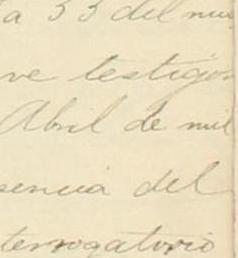 a 53 del mis
ve testigos
Abril de mil
sencia del
terrogatorio